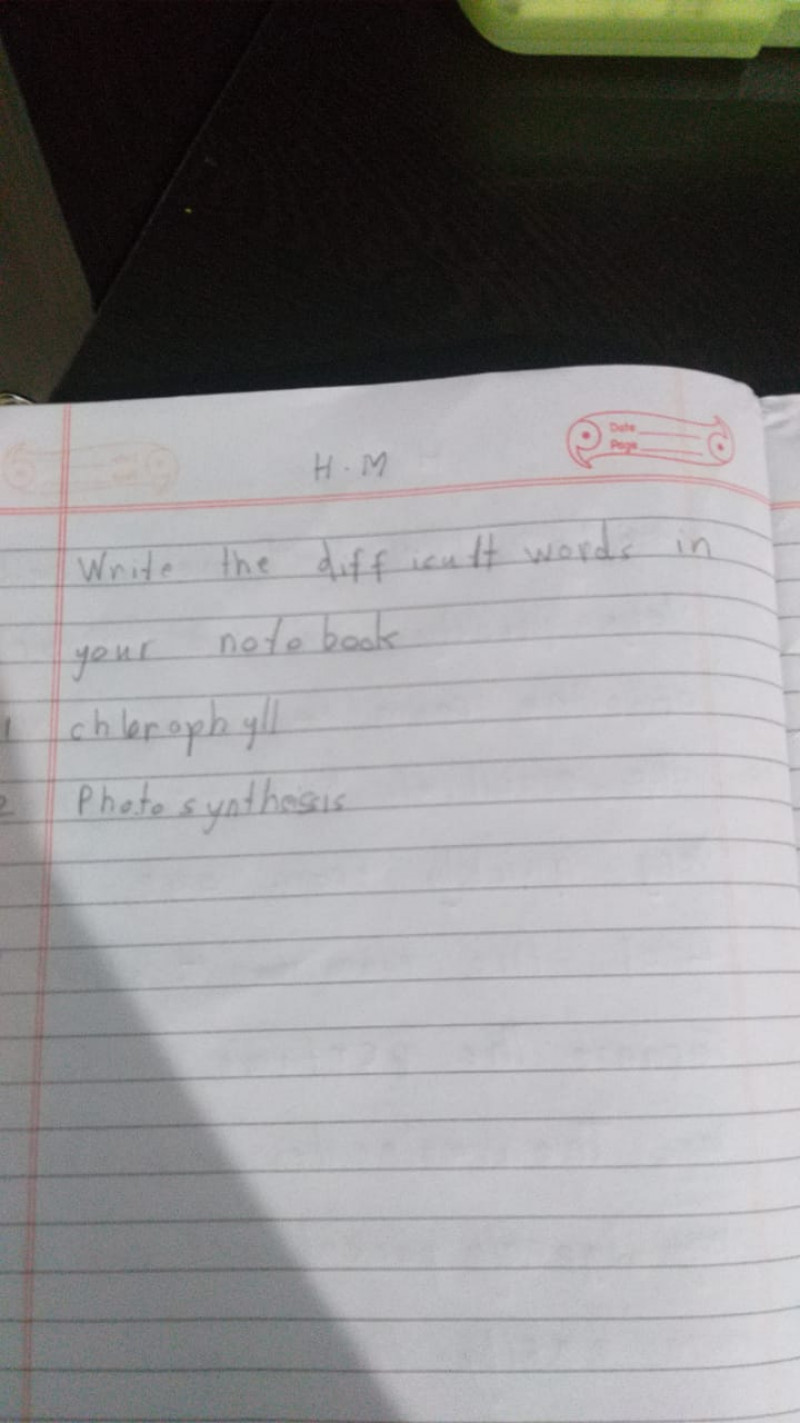 Date
Page
H.M
Write the difficult words in
your notebook
1 chlorophyll
2 Photosynthesis